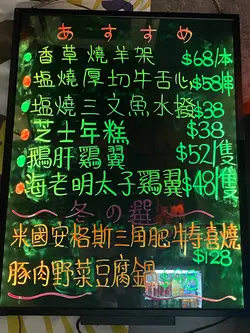 あすすめ
香草燒羊架 $68/本
塩燒厚切牛舌心 $58/串
塩燒三文魚水撥 $38
芝士年糕 $38
鵝肝鷄翼 $52/隻
海老明太子鷄翼 $48/隻
冬の選
米國安格斯三角肥牛寿喜燒
豚肉野菜豆腐鍋 $128